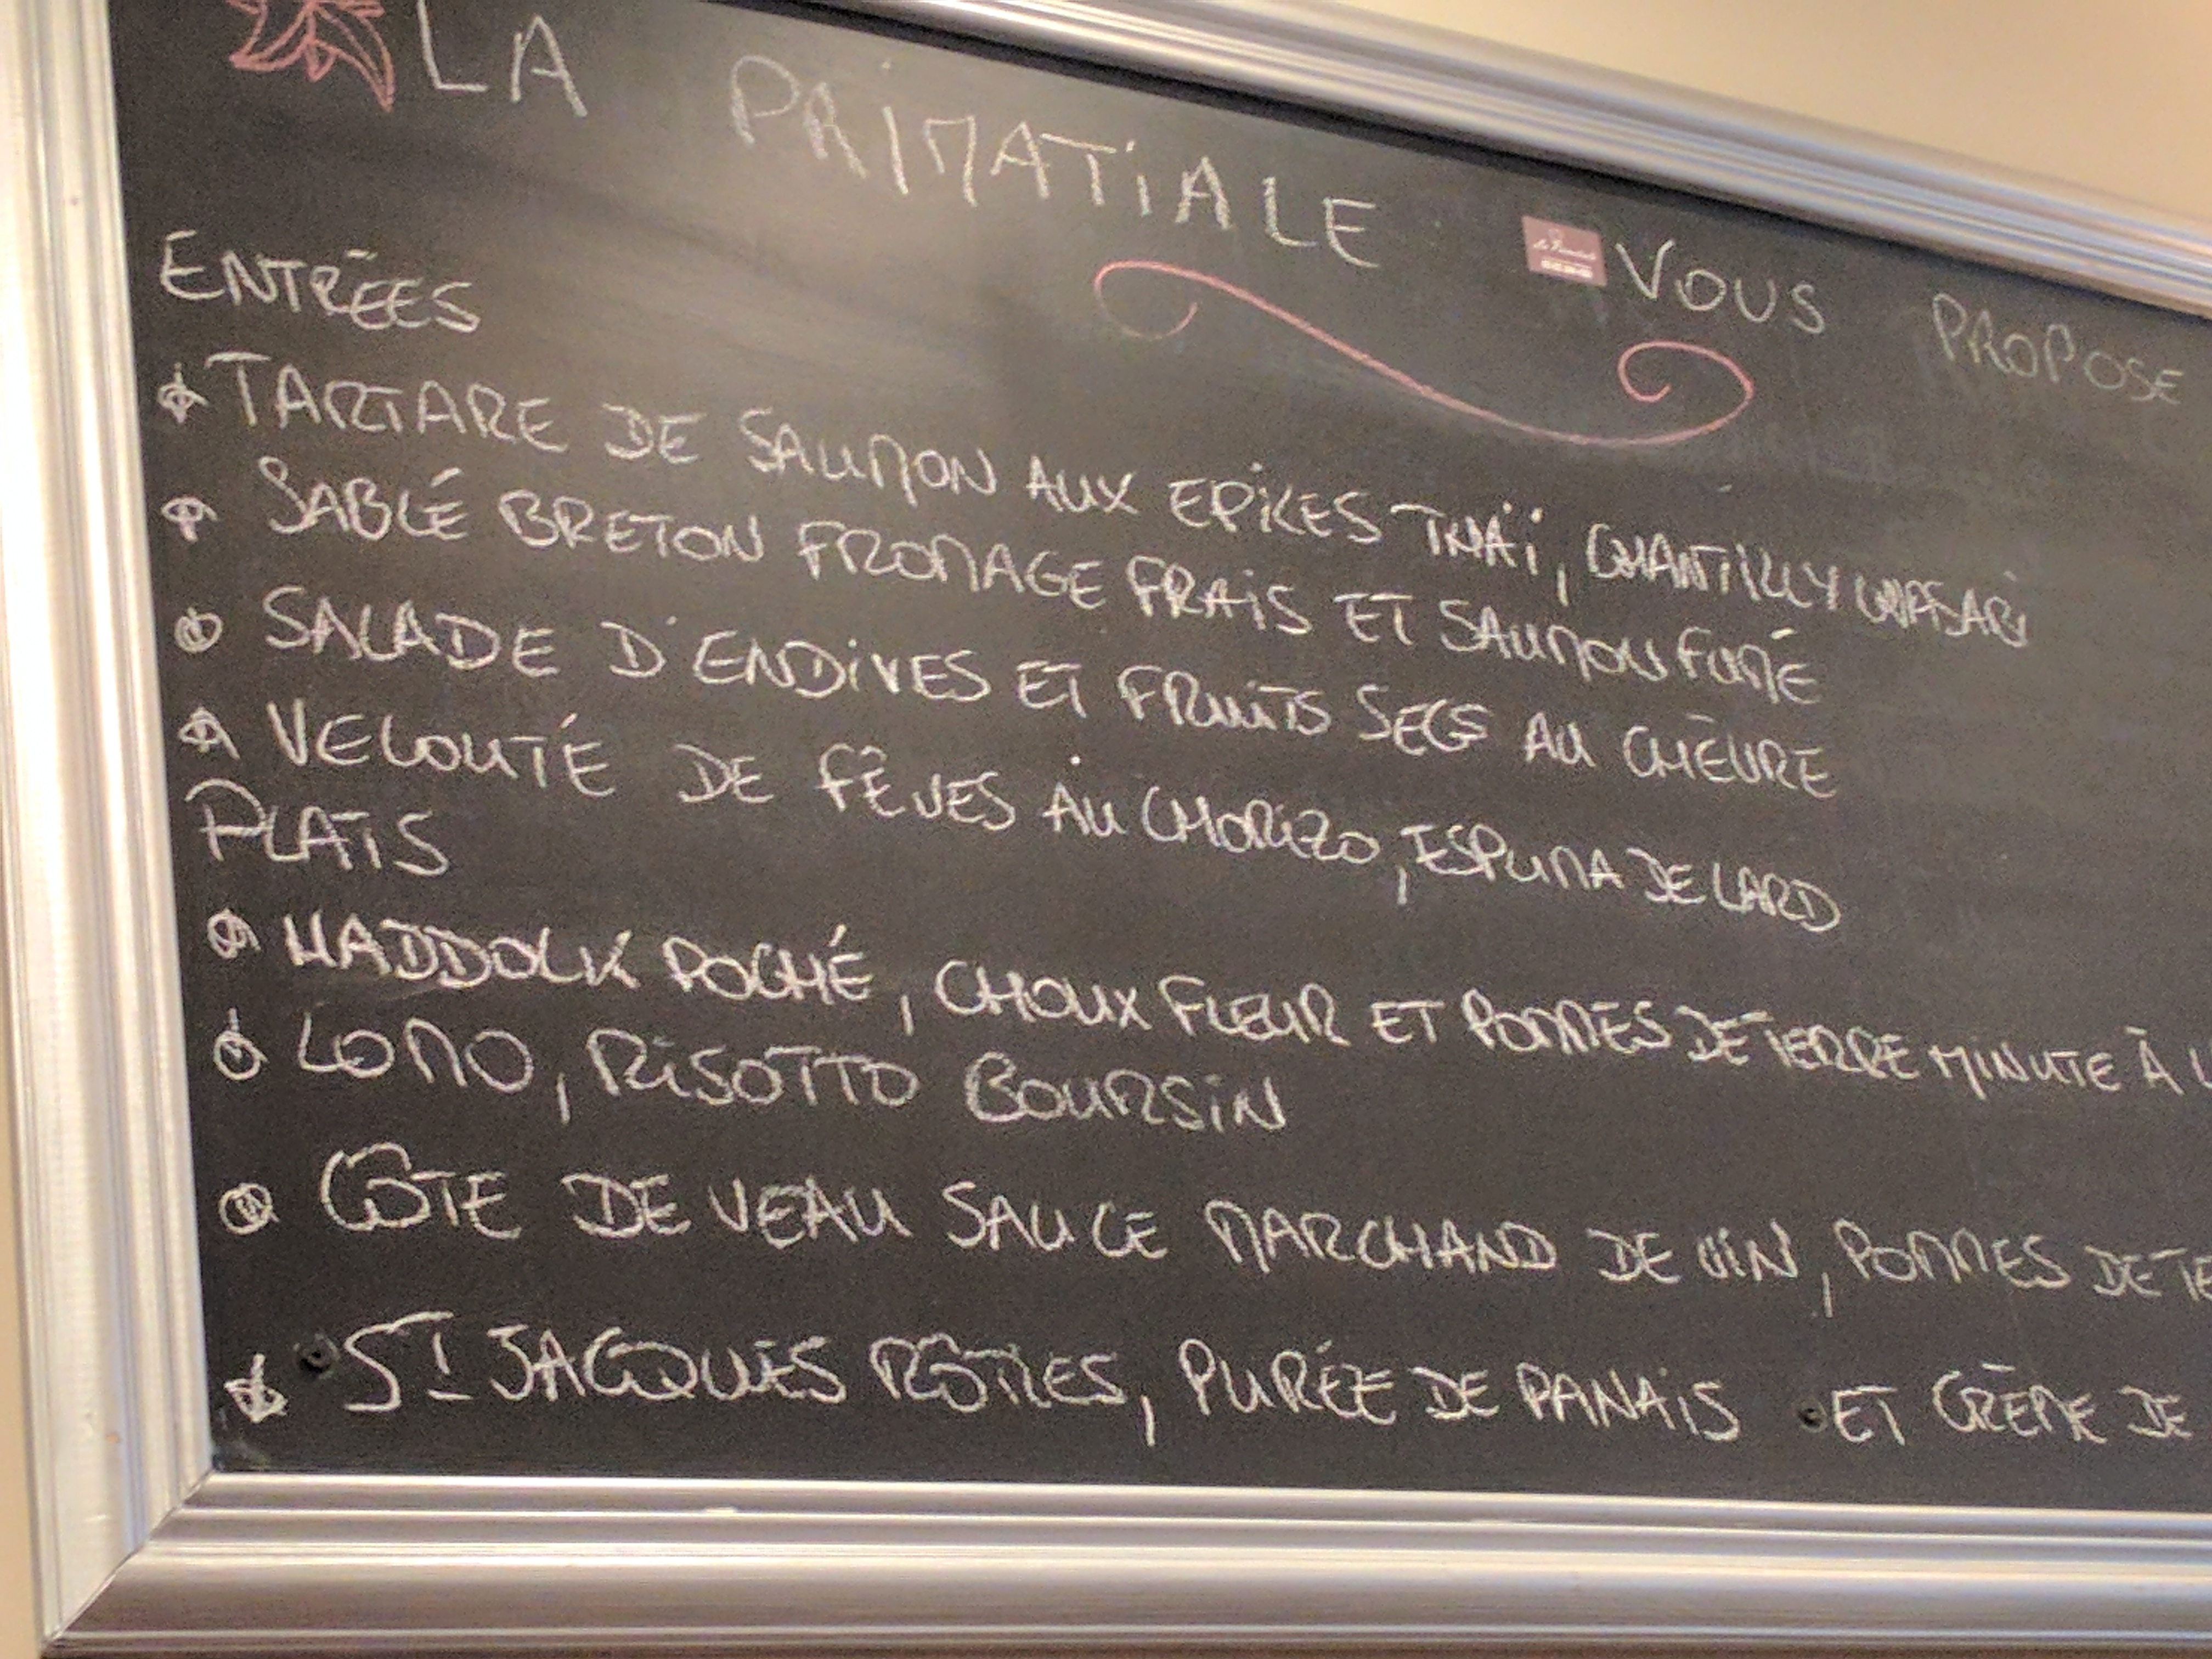 LA PRIMATIALE VOUS PROPOSE
ENTRÉES
TARTARE DE SAUMON AUX EPICES THAÏ, CHANTILLY WASABI
SABLÉ BRETON FROMAGE FRAIS ET SAUMON FUMÉ
SALADE D'ENDIVES ET FRUITS SECS AU CHÈVRE
VELOUTÉ DE FÊVES AU CHORIZO, ESPUMA DE LARD
PLATS
HADDOCK POCHÉ, CHOUX FLEUR ET POMMES DE TERRE MINUTE À L
LOMO, RISOTTO BOURSIN
CÔTE DE VEAU SAUCE MARCHAND DE VIN, POMMES DE TE
ST JACQUES RÔTIES, PURÉE DE PANAIS ET CRÈME DE